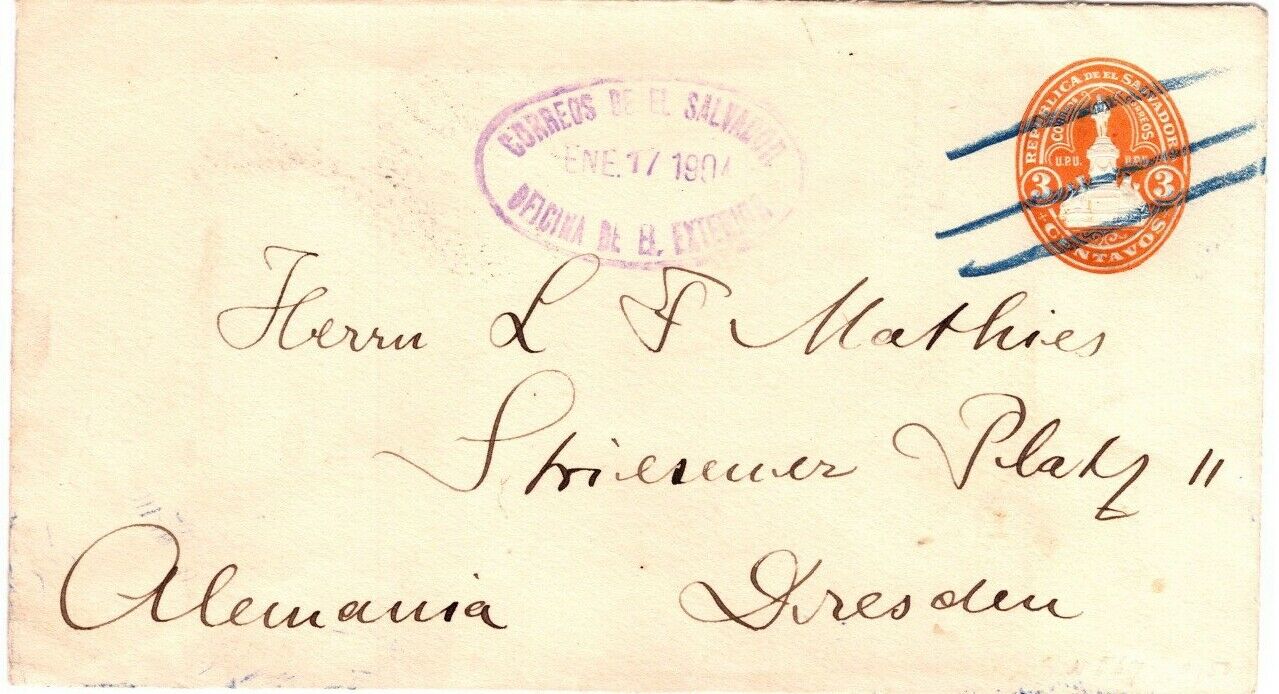 CORREOS DE EL SALVADOR.
ENE. 17 1904
OFICINA DE EL EXTERIOR
REPÚBLICA DE EL SALVADOR
CORREOS
U.P.U. U.P.U.
3 3
CENTAVOS
Herrn L F Mathies
Striesener Platz 11
Alemania Dresden